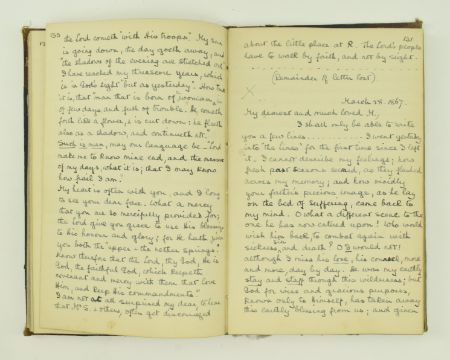 130
the Lord cometh "with His troops." My sun
is going down, the day goeth away, and
"the shadows of the evening are stretched out"
I have reached my threescore years, which
is "in God's sight but as yesterday". How true
it is, "man that is born of a woman, is
of few days and full of trouble. He cometh
forth like a flower, & is cut down: he fleeth
also as a shadow, and continueth not."
Such is man, may our language be "Lord
make me to know mine end, and the measure
of my days, what it is; that I may know
how frail I am."
My heart is often with you, and I long
to see your dear face. What a mercy
that you are so mercifully provided for;
the Lord give you grace to use His blessing
to his honour and glory; for He hath given
you both the upper & the nether springs.
Know therefore that the Lord, thy God, He is
God, the faithful God, which keepeth
covenant and mercy with them that love
Him, and keep His commandments"
I am not at all surprised my dear to hear
that Mr S. & others, often get discouraged
131
about the little place at R. The Lord's people
have to walk by faith, and not by sight.
(Remainder of letter lost)
March 28. 1867.
My dearest and much loved M,
I shall only be able to write
you a few lines. I went yesterday
into "the lines" for the first time since I left
it. I cannot describe my feelings; how
fresh past scenes seemed, as they flashed
across my memory; and how vividly
your father's precious image, as he lay
on the bed of suffering, came back to
my mind. O what a different scene to the
one he has now entered upon! Who would
wish him back, to combat again with
sickness, sin and death? O I would not!
although I miss his love, his counsel, more
and more, day by day. He was my earthly
stay and staff through this wilderness; but
God for wise and gracious purposes,
known only to himself, has taken away
this earthly blessing from us; and given